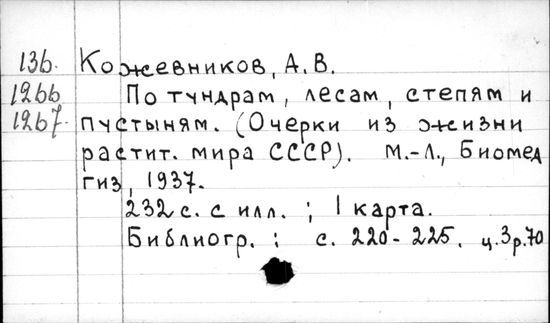 13б. Кожевников, А.В.
12бб По тундрам, лесам, степям и
12б7. пустыням. (Очерки из жизни
растит. мира СССР). М.-Л., Биомед
гиз, 1937.
232 с. с илл. ; 1 карта.
Библиогр. : с. 220-225. ц. 3 р. 70